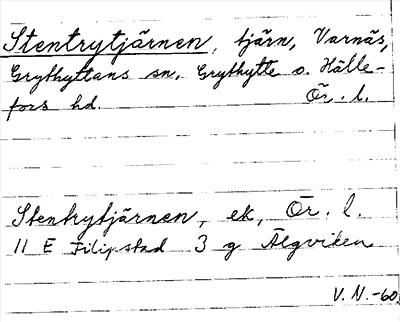 Stentrytjärnen, tjärn, Varnäs,
Grythyttans sn, Grythytte o. Hälle-
fors hd. Ör. l.
Stentrytjärnen, ek, Ör. l.
11 E Filipstad 3 g Älgviken
V. N. -60.